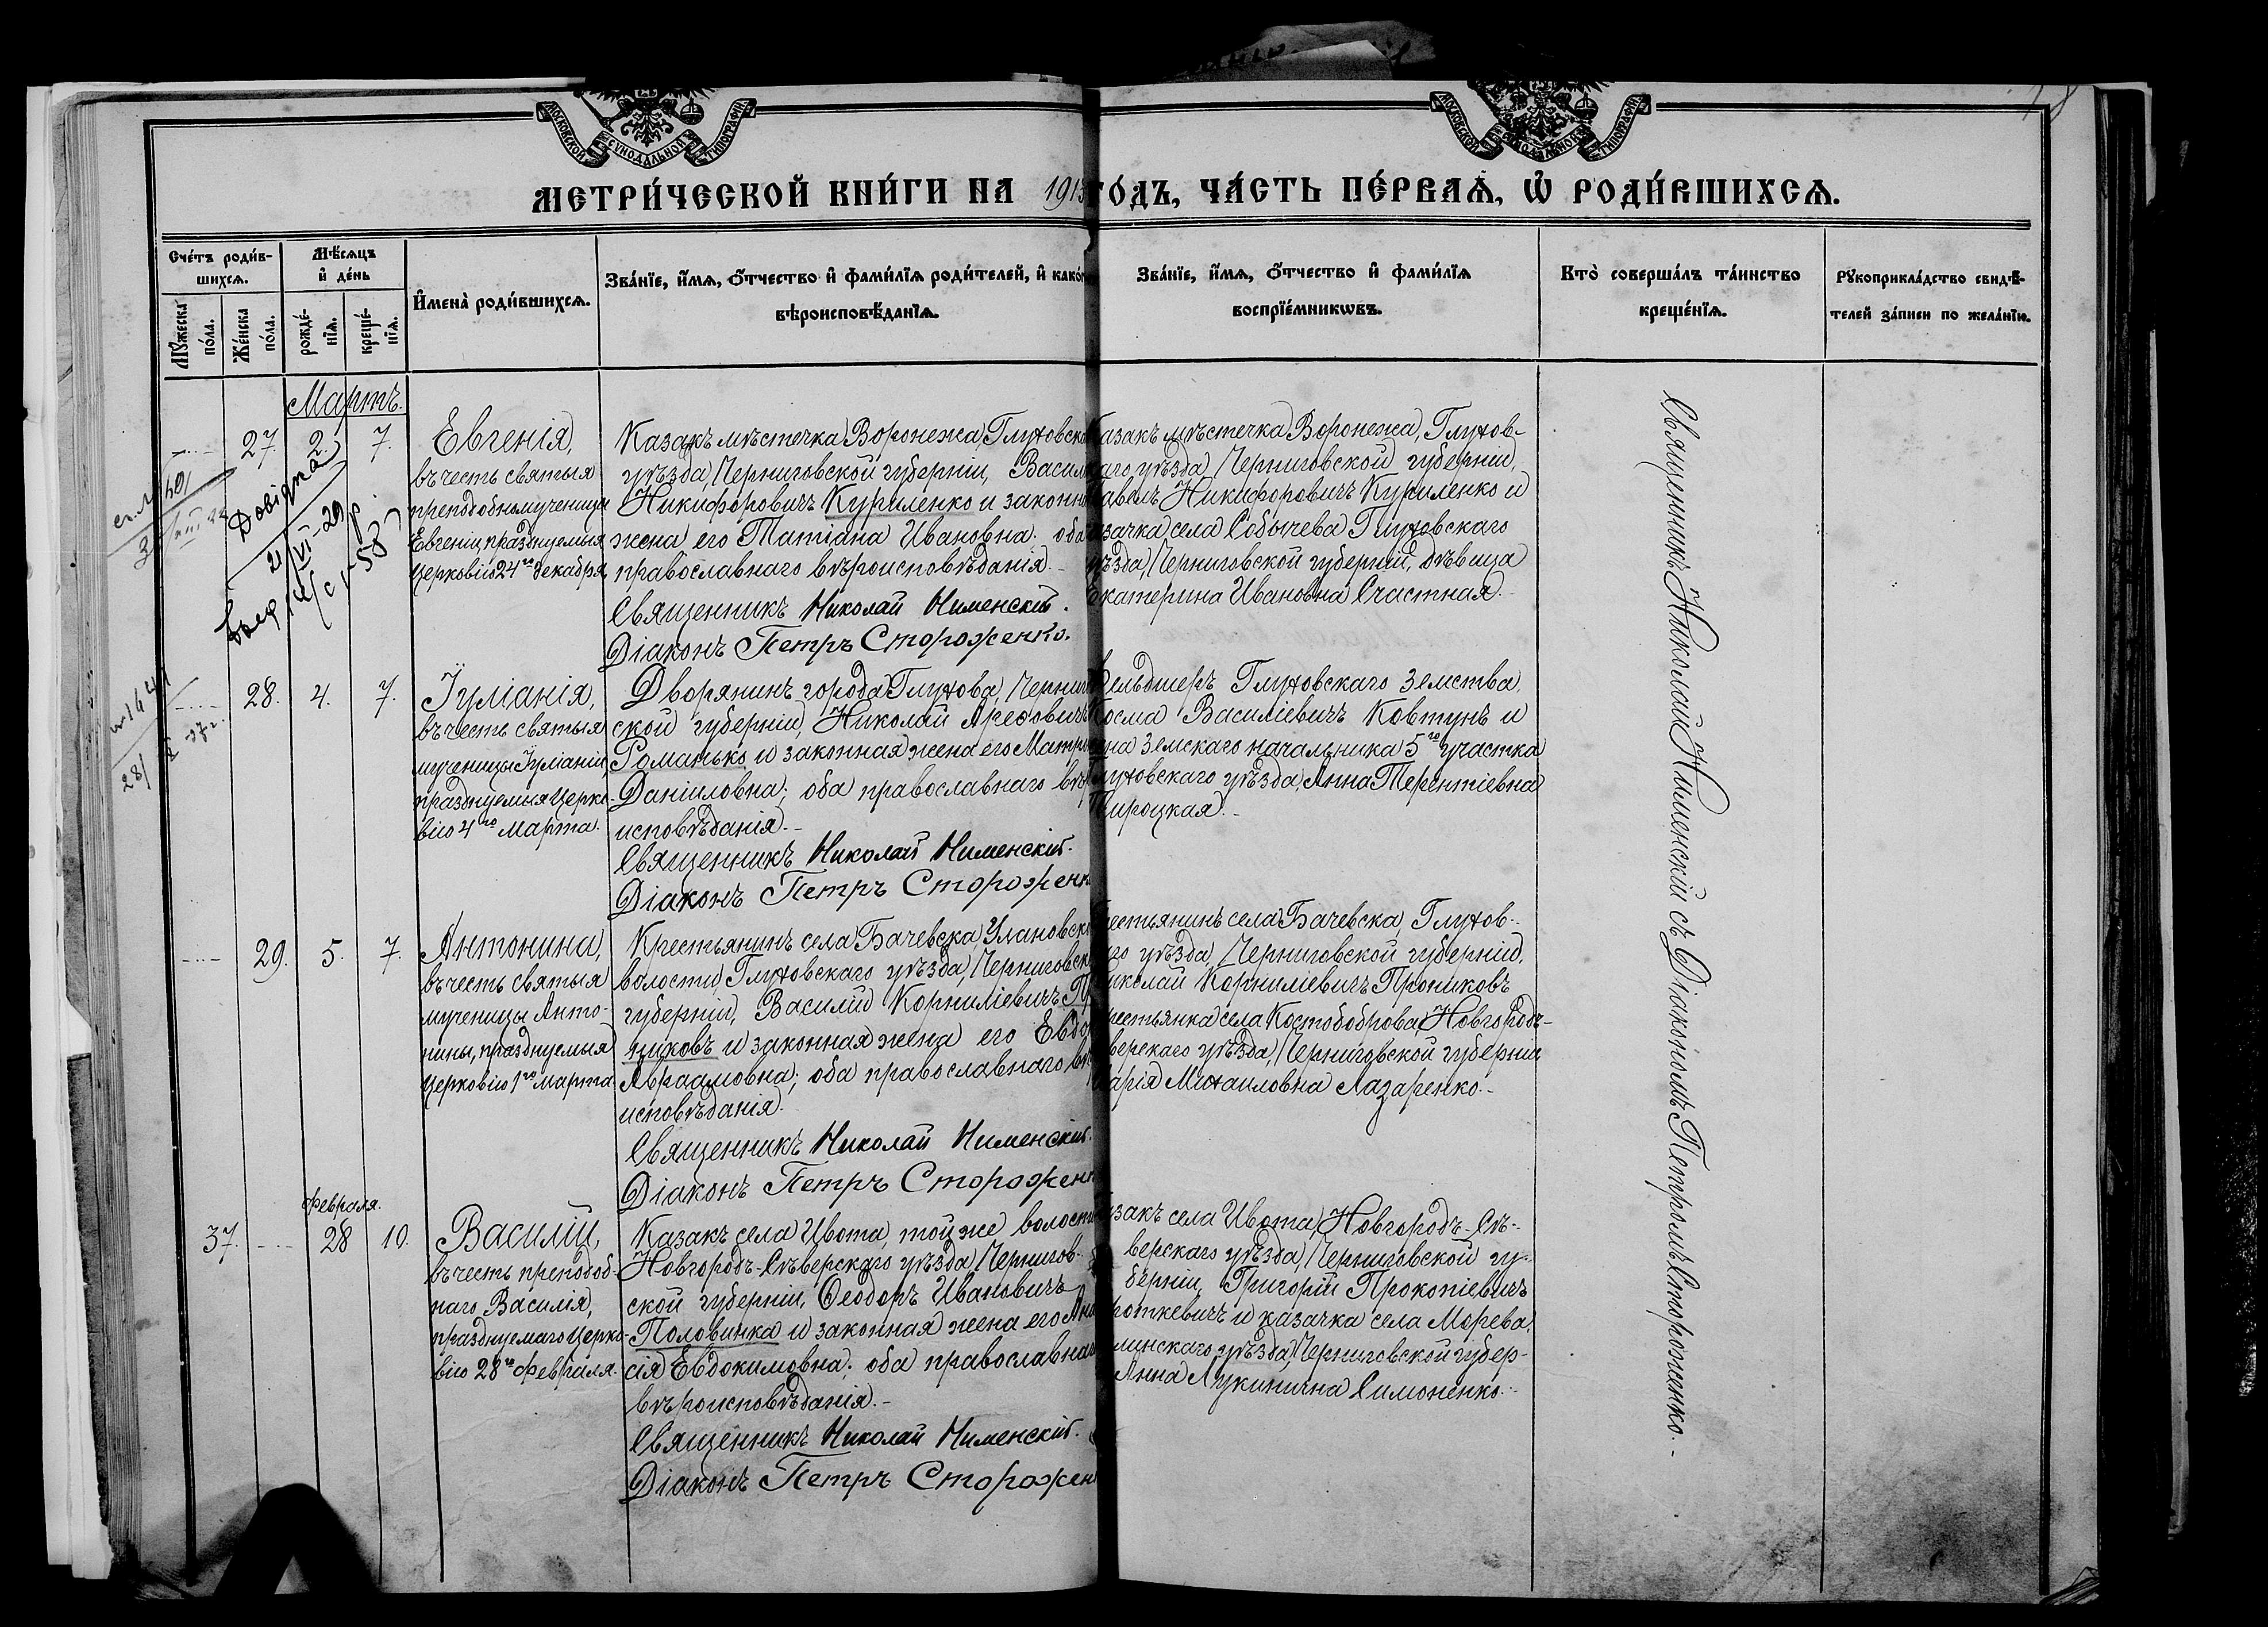 МОСКОВСКОЙ СУНОДАЛЬНОЙ ТИПОГРАФІИ
МОСКОВСКОЙ СУНОДАЛЬНОЙ ТИПОГРАФІИ
МЕТРИ́ЧЕСКОЙ КНИ́ГИ НА 1913 ГО́ДЪ, ЧА́СТЬ ПЕ́РВАѦ, Ѡ РОДИ́ВШИХСѦ.
Сче́тъ роди́в-
шихсѧ.
Мꙋ́жеска по́ла.
Же́нска по́ла.
Мѣ́сѧцъ
и҆ де́нь
рожде́-
нїѧ.
креще́-
нїѧ.
И҆мена̀ роди́вшихсѧ.
Зва́нїе, и҆́мѧ, о҆́тчество и҆ фами́лїѧ роди́телей, и҆ како́г
вѣроисповѣ́данїѧ.
Зва́нїе, и҆́мѧ, о҆́тчество и҆ фами́лїѧ
воспрїе́мникѡвъ.
Кто̀ соверша́лъ та́инство
креще́нїѧ.
Рꙋкоприкла́дство свидѣ́-
телей за́писи по жела́нїю.
Мартъ.
27. 2. 7.
Евгенія,
въ честь святыя
преподобномученицы
Евгеніи, празднуемыя
Церковію 24го декабря.
Казакъ мѣстечка Воронежа, Глуховск
уѣзда, Черниговской губерніи, Васил
Никифоровичъ Куриленко и законн
жена его Татіана Ивановна; оба
православнаго вѣроисповѣданія.
Священникъ Николай Нименскій.
Діаконъ Петръ Стороженко.
Казакъ мѣстечка Воронежа, Глухов-
скаго уѣзда, Черниговской губерніи,
Павелъ Никифоровичъ Куриленко и
казачка села Собычева Глуховскаго
уѣзда, Черниговской губерніи, дѣвица
Екатерина Ивановна Счастная.
Довідка
21/VI-29 р.
28. 4. 7.
Іуліанія,
въ честь святыя
мученицы Іуліаніи,
празднуемыя Церко-
вію 4го Марта.
Дворянинъ города Глухова, Черниг
ской губерніи, Николай Арефовичъ
Романько и законная жена его Матр
Даніиловна; оба православнаго вѣр
исповѣданія.
Священникъ Николай Нименскій.
Діаконъ Петръ Стороженк
Фельдшеръ Глуховскаго Земства,
Косма Василіевичъ Ковтунъ и
жена Земскаго начальника 5го участка
Глуховскаго уѣзда, Анна Терентіевна
Пироцкая.
29. 5. 7.
Антонина,
въ честь святыя
мученицы Анто-
нины, празднуемыя
Церковію 1го Марта.
Крестьянинъ села Бачевска, Улановск
волости, Глуховскаго уѣзда, Черниговск
губерніи, Василій Корниліевичъ Пр
никовъ и законная жена его Евдо
Авраамовна; оба православнаго вѣ
исповѣданія.
Священникъ Николай Нименскій.
Діаконъ Петръ Стороженк
рестьянинъ села Бачевска, Глухов-
го уѣзда, Черниговской губерніи,
Николай Корниліевичъ Прониковъ
рестьянка села Костобоброва, Новгородъ-
верскаго уѣзда, Черниговской губерніи
Марія Михаиловна Лазаренко.
Февраля.
37. 28 10.
Василій,
въ честь преподоб-
наго Василія,
празднуемаго Церко-
вію 28го Февраля.
Казакъ села Ивота, той же волости
Новгородъ-Сѣверскаго уѣзда, Чернигов-
ской губерніи, Ѳеодоръ Ивановичъ
Половинка и законная жена его Ана
сія Евдокимовна; оба православнаг
вѣроисповѣданія.
Священникъ Николай Нименскій.
Діаконъ Петръ Сторожен
азакъ села Ивота, Новгородъ-Сѣ-
верскаго уѣзда, Черниговской гу-
берніи, Григорій Прокопіевичъ
откевичъ и казачка села Морева,
минскаго уѣзда, Черниговской губер-
Анна Лукинична Симоненко.
Священникъ Николай Нименскій съ Діакономъ Петромъ Стороженко.